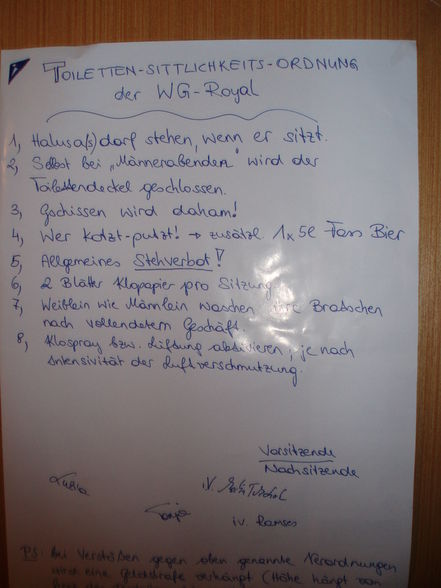 TOILETTEN-SITTLICHKEITS-ORDNUNG
der WG-Royal
1, Halusa(s) darf stehen, wenn er sitzt.
2, Selbst bei „Männerabenden" wird der
Toilettendeckel geschlossen.
3, Gschissen wird daham!
4, Wer kotzt-putzt! → zusätzl. 1x5l Fass Bier
5, Allgemeines Stehverbot!
6, 2 Blätter Klopapier pro Sitzung
7, Weiblein wie Männlein waschen ihre Bratschen
nach vollendetem Geschäft.
8, Klospray bzw. Lüftung aktivieren, je nach
Intensivität der Luftverschmutzung.
Vorsitzende
Nachsitzende
i.V.
Tanja
iv. Ramses
PS: Bei Verstößen gegen oben genannte Verordnungen
wird eine Geldstrafe verhängt (Höhe hängt von